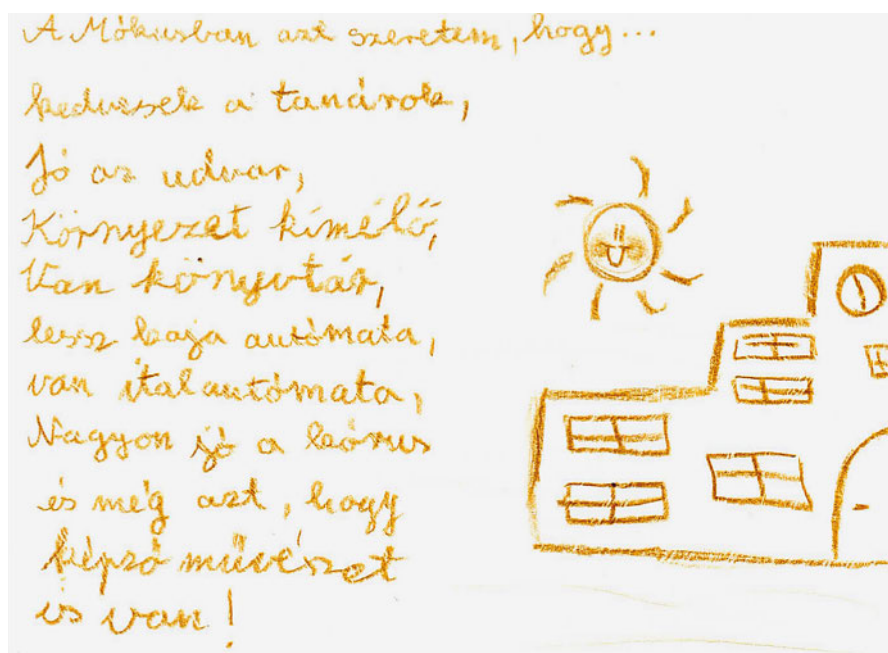 A Mókusban azt szeretem, hogy...
kedvesek a tanárok,
Jó az udvar,
Környezet kímélő,
Van könyvtár,
lessz kaja autómata,
van ital autómata,
Nagyon jó a kórus
és még azt, hogy
képző művészet
is van!